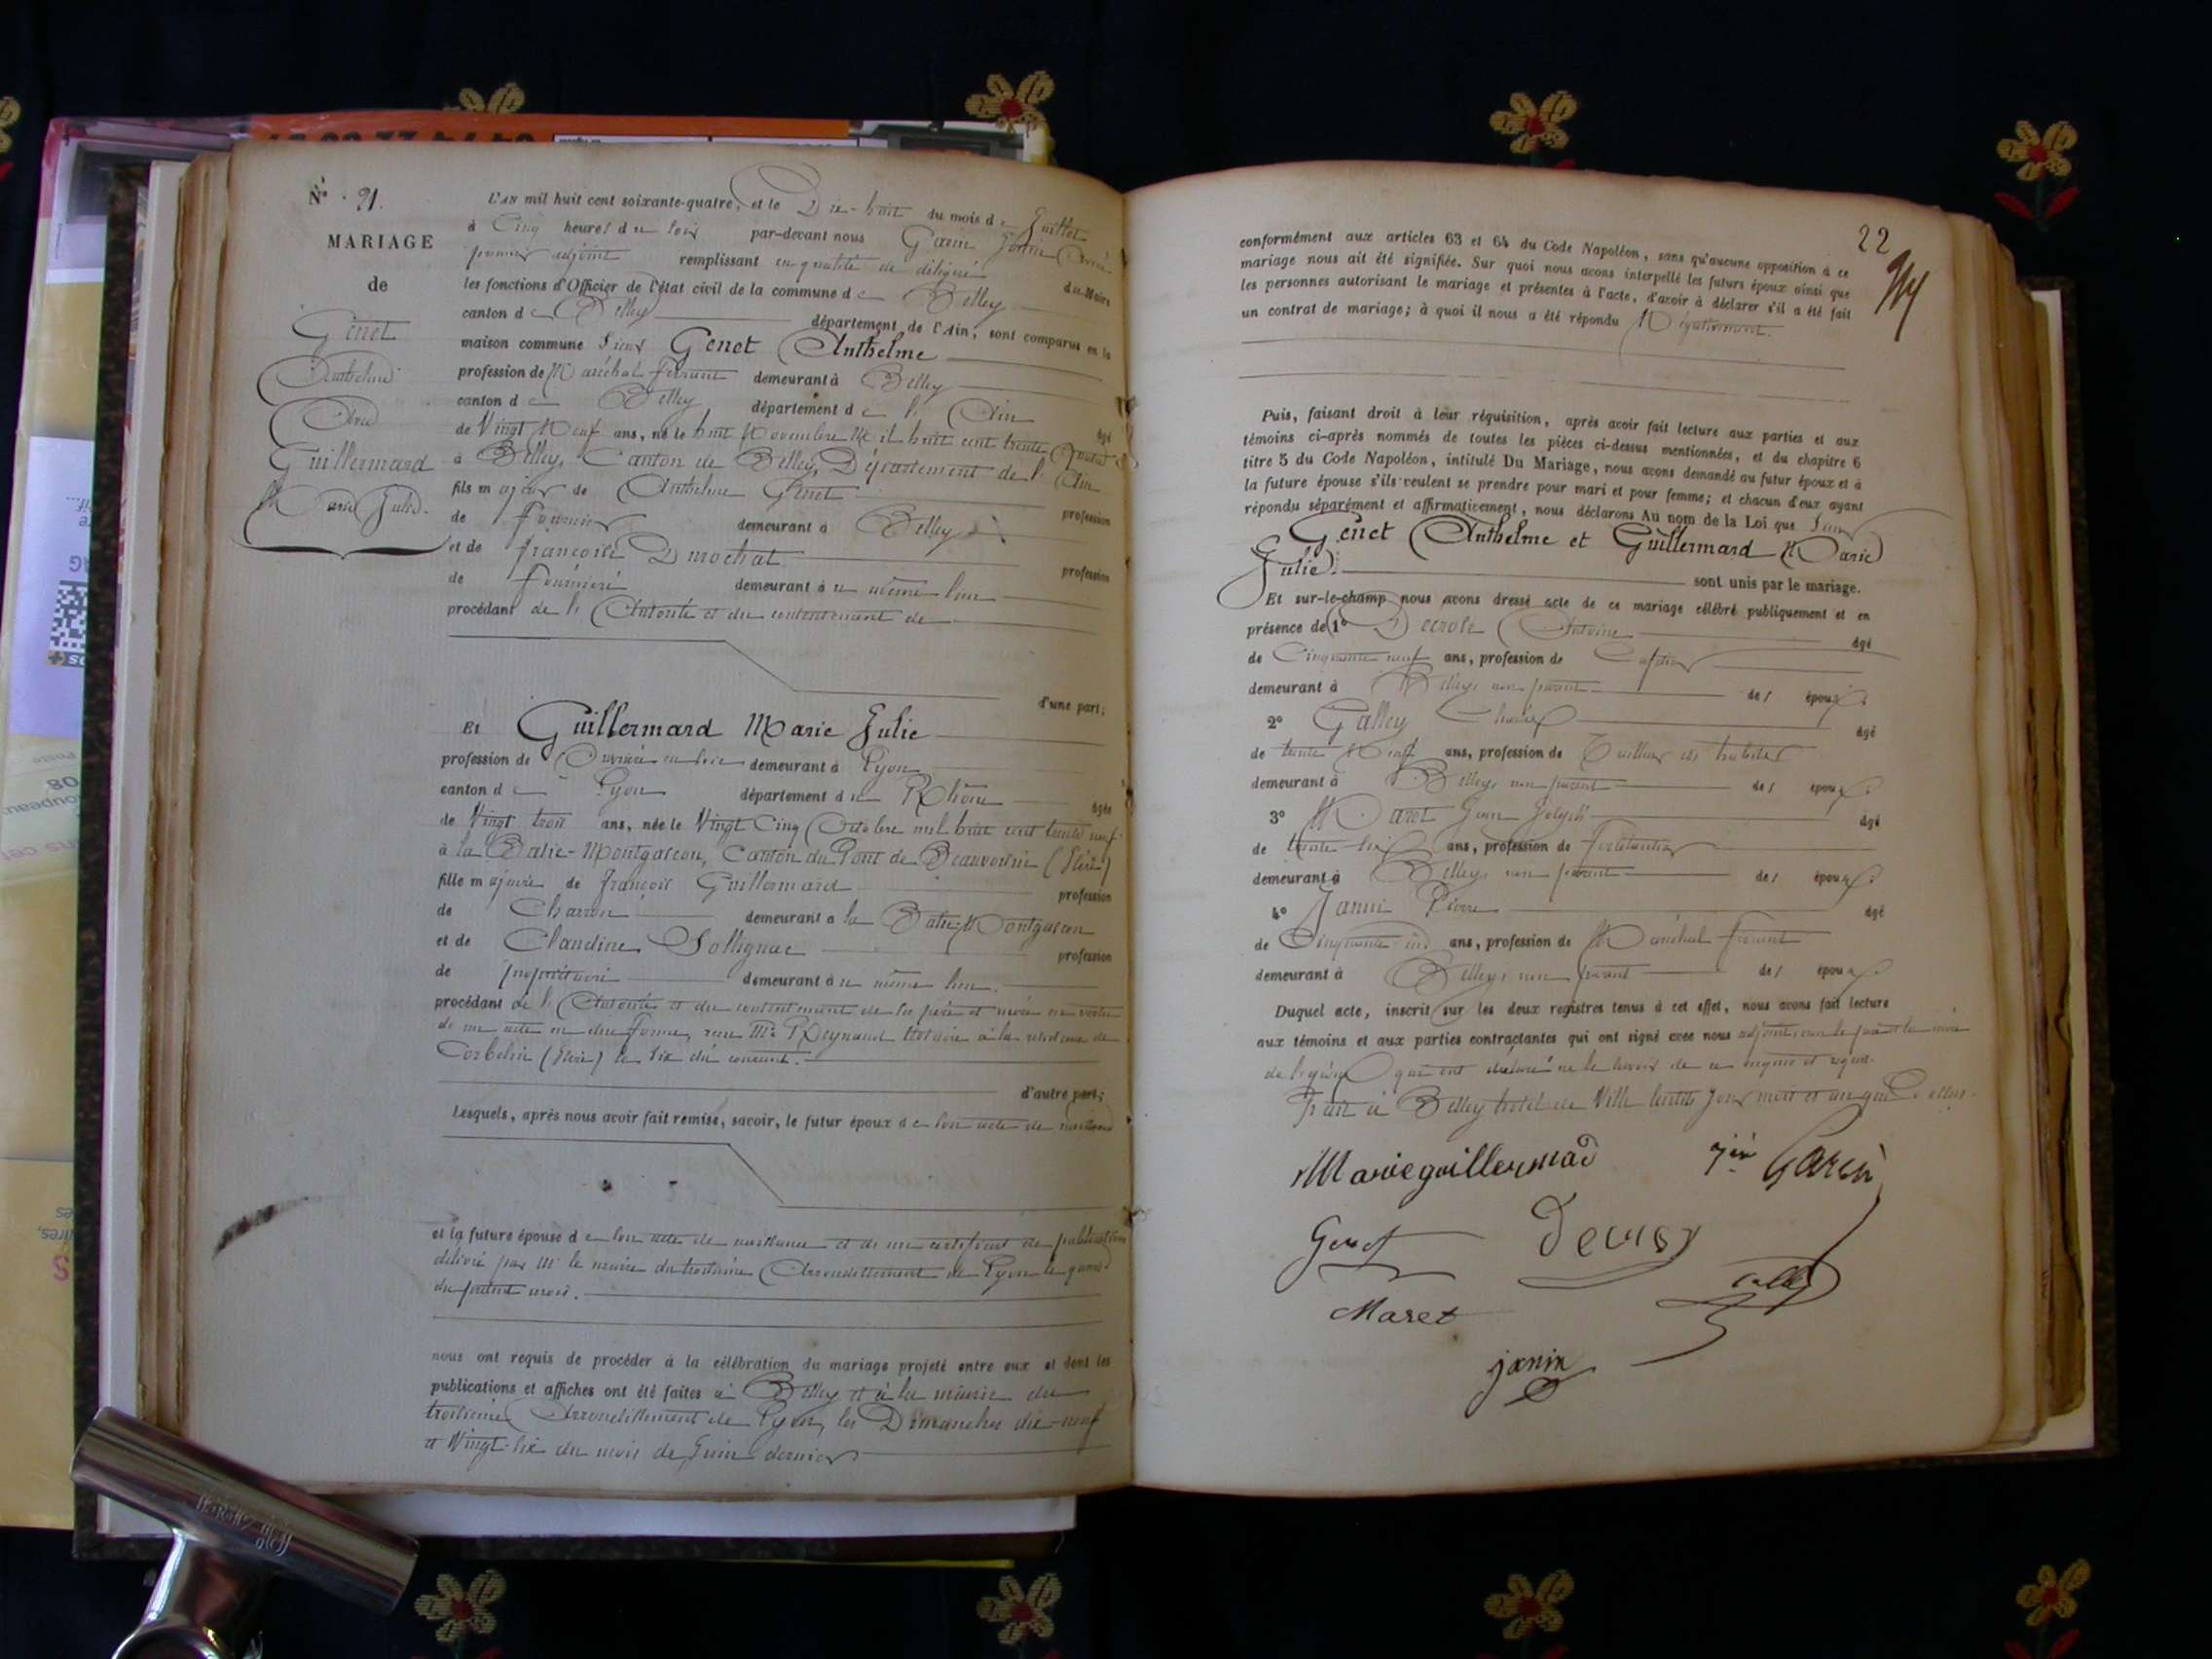 N° 21.
MARIAGE
de
Genet
Anthelme
Avec
Guillermard
Marie Julie.
L'AN mil huit cent soixante-quatre, et le Dix-huit du mois de Juillet
à Cinq heures du soir par-devant nous Garin
premier adjoint remplissant en qualité de délégué du Maire
les fonctions d'Officier de l'état civil de la commune de Belley
canton de Belley département de l'Ain, sont comparus en la
maison commune Sieur Genet Anthelme
profession de Maréchal-ferrant demeurant à Belley
canton de Belley département de l'Ain âgé
de Vingt Neuf ans, né le huit Novembre Mil huit cent trente Quatre
à Belley, Canton de Belley, Département de l'Ain
fils majeur de Anthelme Genet profession
de fournier demeurant à Belley
et de françoise Durochat profession
de fournière demeurant à ce même lieu
procédant de l'Autorité et du consentement de
d'une part;
Et Guillermard Marie Julie
profession de Ouvrière en soie demeurant à Lyon
canton de Lyon département du Rhône âgée
de Vingt trois ans, née le Vingt Cinq Octobre mil huit cent trente neuf
à la Batie-Montgascon, Canton du Pont de Beauvoisin (Isère)
fille majeure de françois Guillermard profession
de Charron demeurant à la Batie-Montgascon
et de Claudine Sollignac profession
de propriétaire demeurant à ce même lieu.
procédant de l'Autorité et du consentement de ses père et mère en vertu
de un acte en due forme, reçu Me Reynaud Notaire à la résidence de
Corbelin (Isère) le six du courant.
d'autre part;
Lesquels, après nous avoir fait remise, savoir, le futur époux de son acte de naissance
et la future épouse de son acte de naissance et de un certificat de publication
délivré par Mr le maire du troisième Arrondissement de Lyon le
du présent mois.
nous ont requis de procéder à la célébration du mariage projeté entre eux et dont les
publications et affiches ont été faites à Belley et à la mairie du
troisième Arrondissement de Lyon, les Dimanches dix-neuf
et Vingt-six du mois de Juin dernier
22
conformément aux articles 63 et 64 du Code Napoléon, sans qu'aucune opposition à ce
mariage nous ait été signifiée. Sur quoi nous avons interpellé les futurs époux ainsi que
les personnes autorisant le mariage et présentes à l'acte, d'avoir à déclarer s'il a été fait
un contrat de mariage; à quoi il nous a été répondu Négativement.
Puis, faisant droit à leur réquisition, après avoir fait lecture aux parties et aux
témoins ci-après nommés de toutes les pièces ci-dessus mentionnées, et du chapitre 6
titre 5 du Code Napoléon, intitulé Du Mariage, nous avons demandé au futur époux et à
la future épouse s'ils veulent se prendre pour mari et pour femme; et chacun d'eux ayant
répondu séparément et affirmativement, nous déclarons Au nom de la Loi que Sieur
Genet Anthelme et Guillermard Marie
Julie. sont unis par le mariage.
Et sur-le-champ nous avons dressé acte de ce mariage célébré publiquement et en
présence de 1° Antoine âgé
de Cinquante neuf ans, profession de Cafetier
demeurant à Belley, non parent des époux.
2° Galley Charles âgé
de trente Neuf ans, profession de Tailleur de
demeurant à Belley, non parent des époux.
3° Maret Jean Joseph âgé
de trente-six ans, profession de Ferblantier
demeurant à Belley, non parent des époux.
4° Janin Pierre âgé
de ans, profession de Maréchal ferrant
demeurant à Belley, non parent des époux
Duquel acte, inscrit sur les deux registres tenus à cet effet, nous avons fait lecture
aux témoins et aux parties contractantes qui ont signé avec nous adjoint, non le père et la mère
de l'époux qui ont déclaré ne le savoir de ce enquis et requis.
Fait à Belley hôtel de Ville lesdits Jour mois et an que dessus.
Marie guillermad
Garin
Genet
Maret
janin